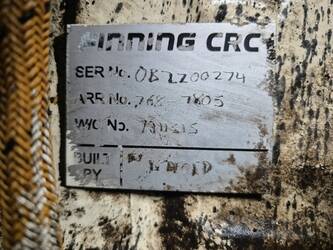 FINNING CRC
SER No. 0B2Z00274
ARR. No. 768-7805
W/C No.
BUILT
BY